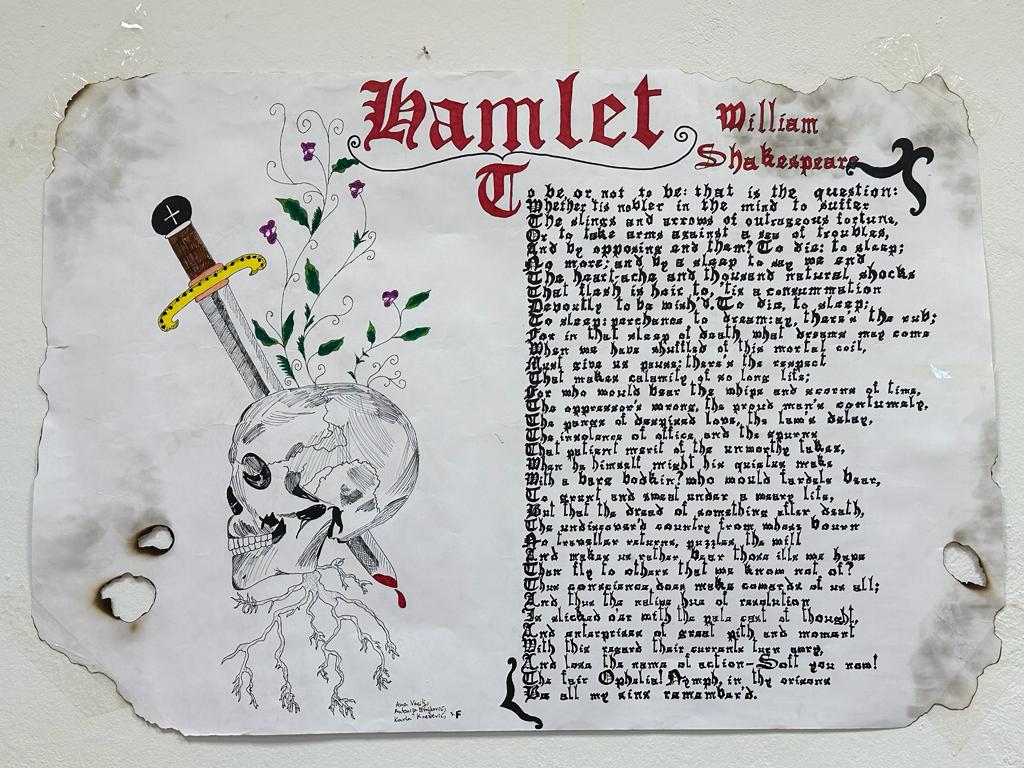 Hamlet
William
Shakespeare
To be, or not to be: that is the question:
Whether 'tis nobler in the mind to suffer
The slings and arrows of outrageous fortune,
Or to take arms against a sea of troubles,
And by opposing end them? To die: to sleep;
No more; and by a sleep to say we end
The heart-ache and thousand natural shocks
That flesh is heir to, 'tis a consummation
Devoutly to be wish'd. To die, to sleep;
To sleep: perchance to dream: ay, there's the rub;
For in that sleep of death what dreams may come
When we have shuffled of this mortal coil,
Must give us pause: there's the respect
That makes calamity of so long life;
For who would bear the whips and scorns of time,
The oppressor's wrong, the proud man's contumely,
The pangs of despised love, the law's delay,
The insolence of office and the spurns
That patient merit of the unworthy takes,
When he himself might his quietus make
With a bare bodkin? who would fardels bear,
To grunt and sweat under a weary life,
But that the dread of something after death,
The undiscover'd country from whose bourn
No traveller returns, puzzles the will
And makes us rather bear those ills we have
Than fly to others that we know not of?
Thus conscience does make cowards of us all;
And thus the native hue of resolution
Is slicked o'er with the pale cast of thought,
And enterprises of great pith and moment
With this regard their currents turn awry,
And lose the name of action-Soft you now!
The fair Ophelia! Nymph, in thy orisons
Be all my sins remember'd.
Ana
Antonija
Karla